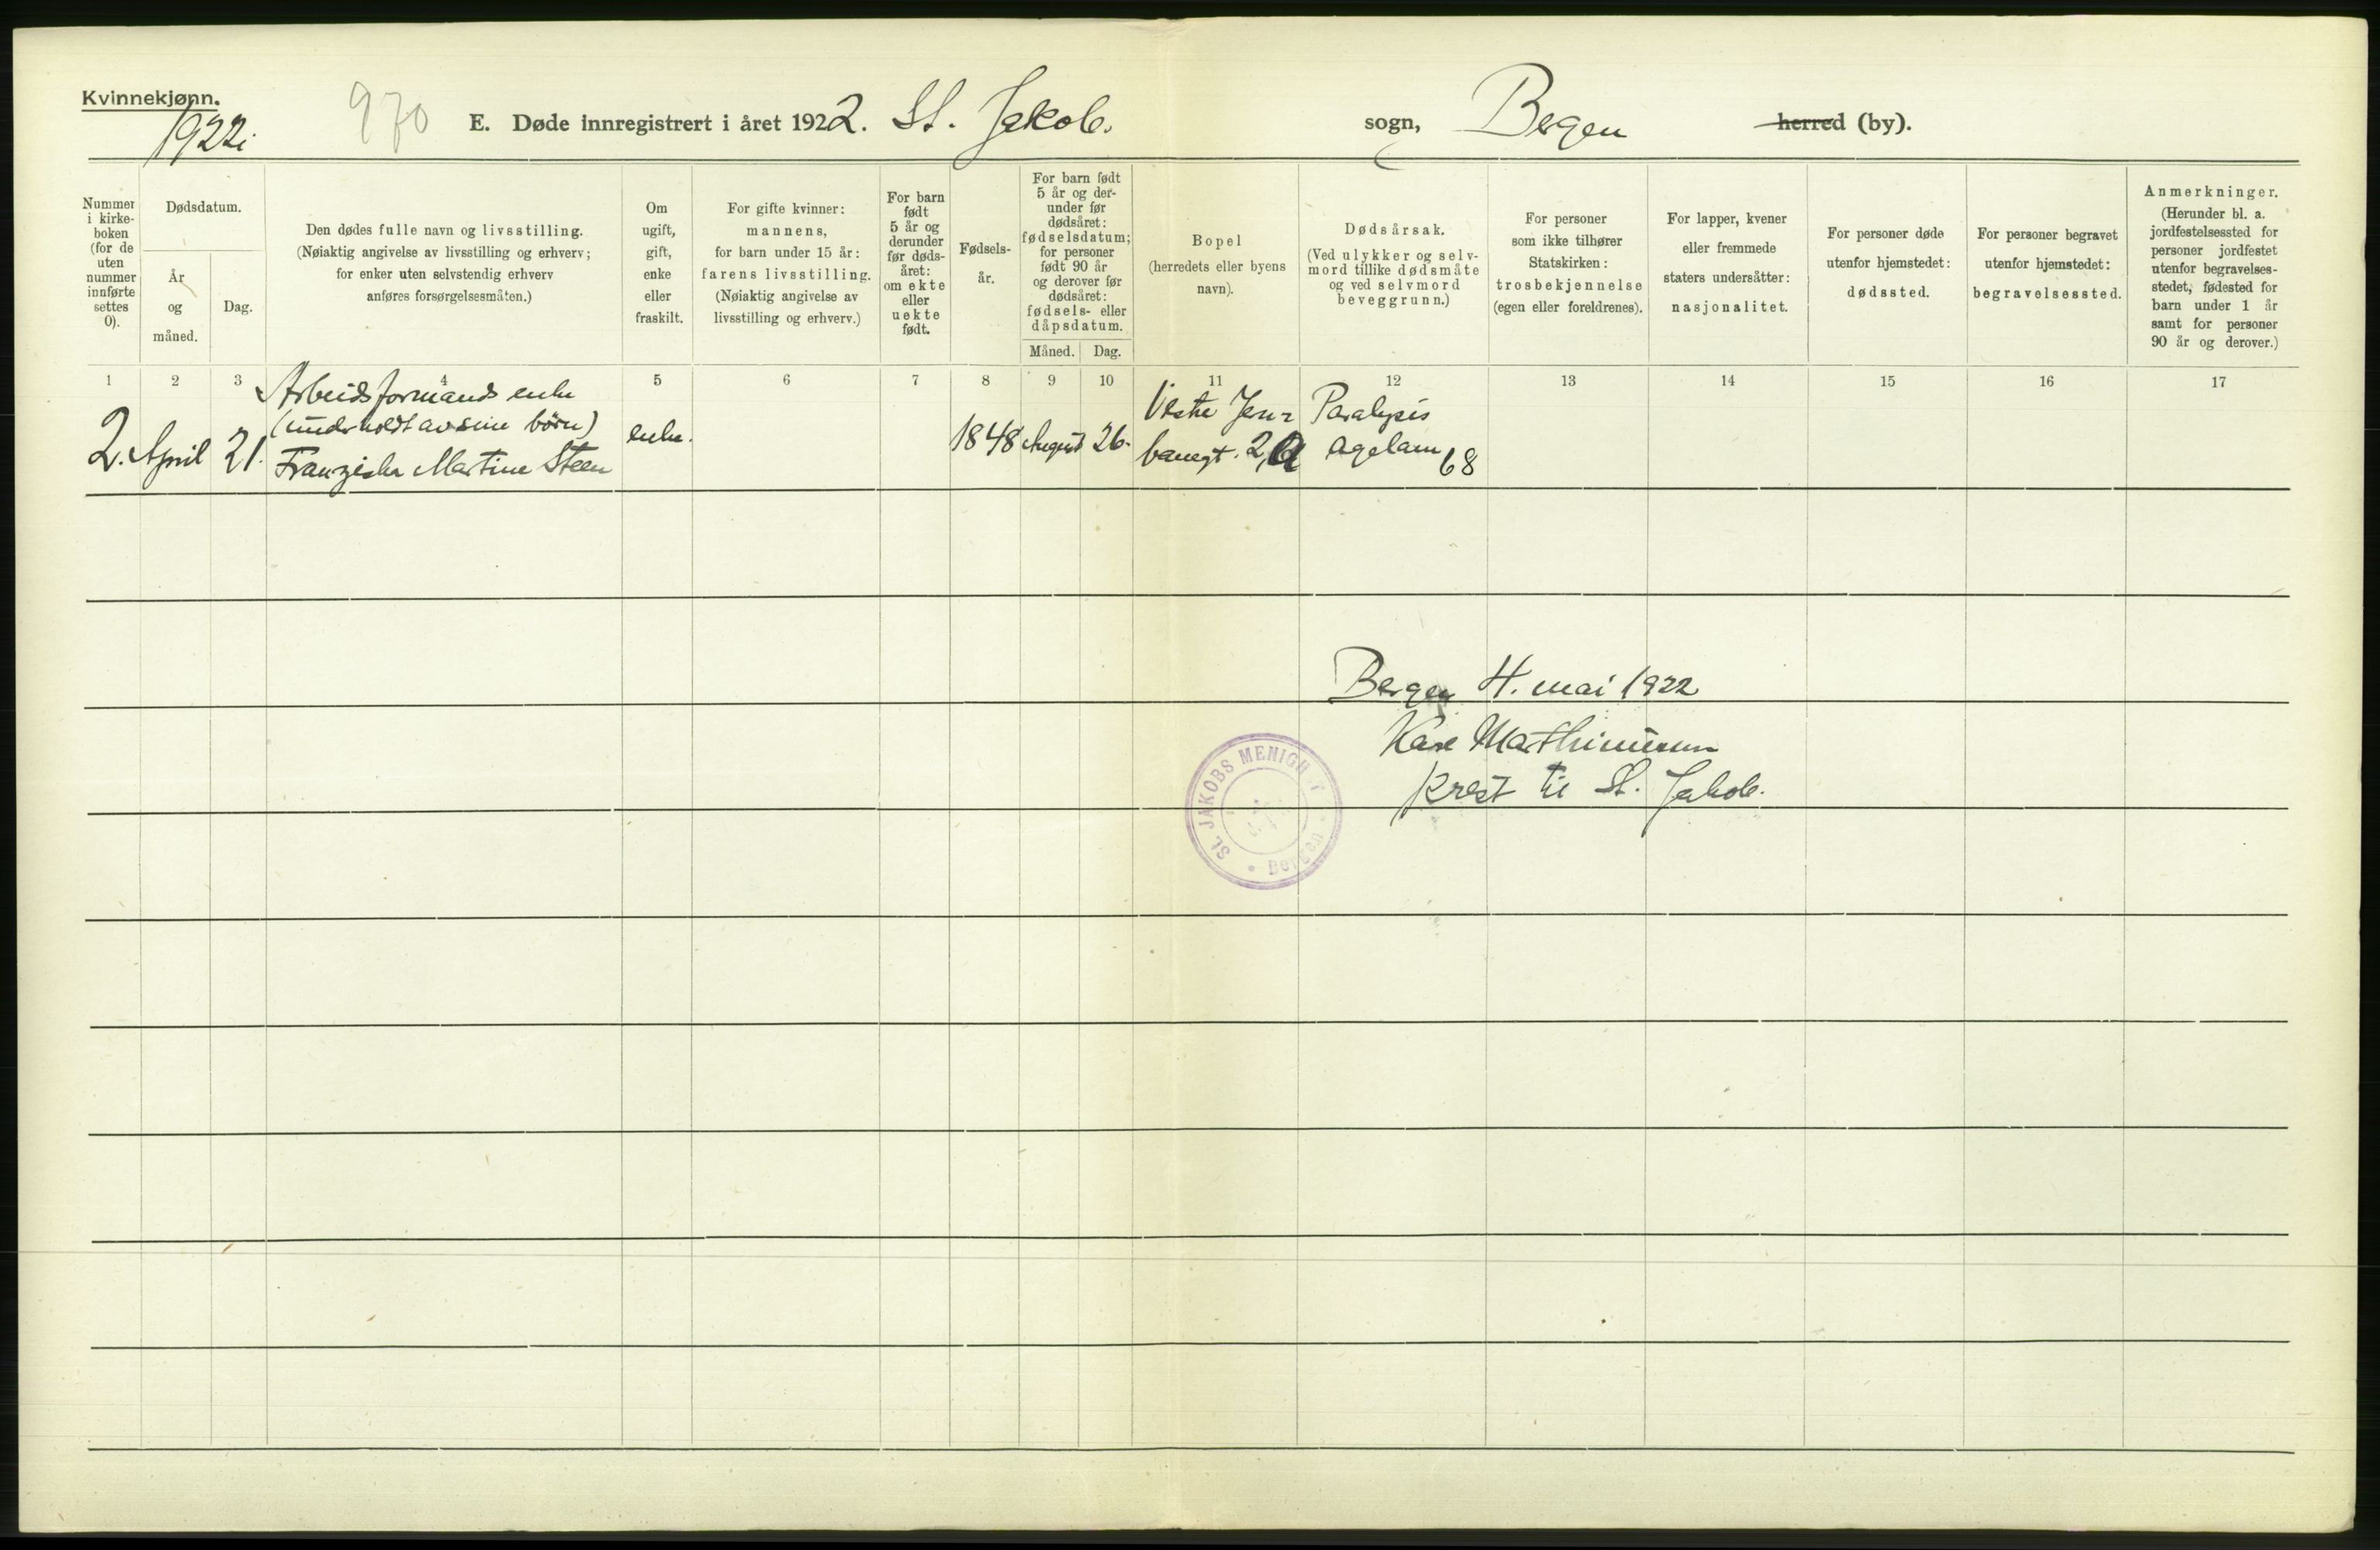 Kvinnekjønn.
1922
970
E. Døde innregistrert i året 1922. St. Jakob. sogn, Bergen herred (by).
Nummer i kirke-boken (for de uten nummer innførte settes 0).
Dødsdatum.
År og måned.
Dag.
Den dødes fulle navn og livsstilling.
(Nøiaktig angivelse av livsstilling og erhverv;
for enker uten selvstendig erhverv
anføres forsørgelsesmåten.)
Om
ugift,
gift,
enke
eller
fraskilt.
For gifte kvinner:
mannens,
for barn under 15 år:
farens livsstilling.
(Nøiaktig angivelse av
livsstilling og erhverv.)
For barn
født
5 år og
derunder
før døds-
året:
om ekte
eller
uekte
født.
Fødsels-
år.
For barn født
5 år og der-
under før
dødsåret:
fødselsdatum;
for personer
født 90 år
og derover før
dødsåret:
fødsels- eller
dåpsdatum.
Måned. Dag.
Bopel
(herredets eller byens
navn).
Dødsårsak.
(Ved ulykker og selv-
mord tillike dødsmåte
og ved selvmord
beveggrunn.)
For personer
som ikke tilhører
Statskirken:
trosbekjennelse
(egen eller foreldrenes).
For lapper, kvener
eller fremmede
staters undersåtter:
nasjonalitet.
For personer døde
utenfor hjemstedet:
dødssted.
For personer begravet
utenfor hjemstedet:
begravelsessted.
Anmerkninger.
(Herunder bl. a.
jordfestelsessted for
personer jordfestet
utenfor begravelses-
stedet, fødested for
barn under 1 år
samt for personer
90 år og derover.)
1 2 3 4 5 6 7 8 9 10 11 12 13 14 15 16 17
Arbeidsformands enke
(underholdt av sine børn)
2. April 21. Franziska Martine Steen enke. 1848 August 26.
Vestre Jern-
banegt. 2,
Paralysis
agelam 68
Bergen 4. mai 1922
Kåre Mathiesen
Krest til St. Jakob.
St. JAKOBS MENIGH T
Bergen